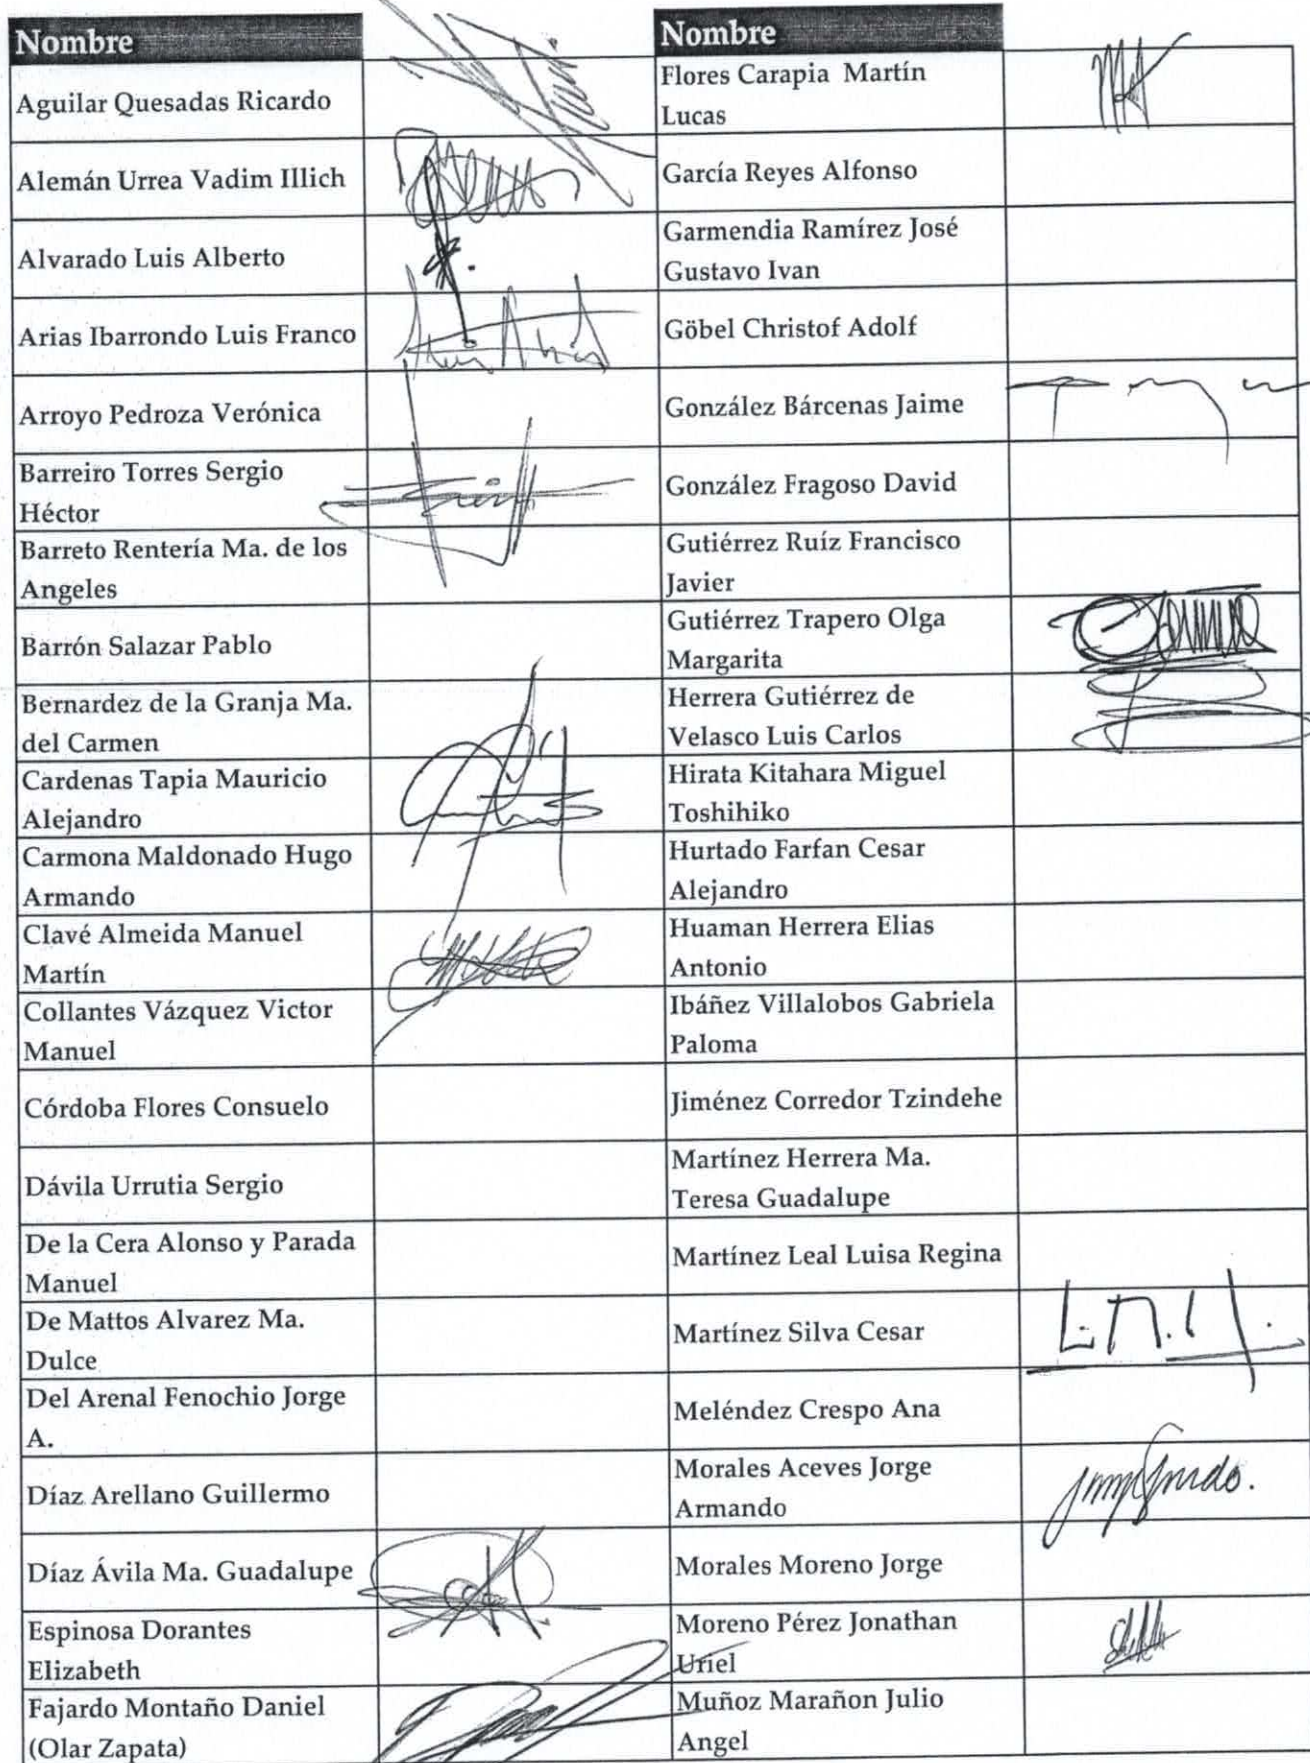 Nombre
Aguilar Quesadas Ricardo
Alemán Urrea Vadim Illich
Alvarado Luis Alberto
Arias Ibarrondo Luis Franco
Arroyo Pedroza Verónica
Barreiro Torres Sergio
Héctor
Barreto Rentería Ma. de los
Angeles
Barrón Salazar Pablo
Bernardez de la Granja Ma.
del Carmen
Cardenas Tapia Mauricio
Alejandro
Carmona Maldonado Hugo
Armando
Clavé Almeida Manuel
Martín
Collantes Vázquez Victor
Manuel
Córdoba Flores Consuelo
Dávila Urrutia Sergio
De la Cera Alonso y Parada
Manuel
De Mattos Alvarez Ma.
Dulce
Del Arenal Fenochio Jorge
A.
Díaz Arellano Guillermo
Díaz Ávila Ma. Guadalupe
Espinosa Dorantes
Elizabeth
Fajardo Montaño Daniel
(Olar Zapata)
Nombre
Flores Carapia Martín
Lucas
García Reyes Alfonso
Garmendia Ramírez José
Gustavo Ivan
Göbel Christof Adolf
González Bárcenas Jaime
González Fragoso David
Gutiérrez Ruíz Francisco
Javier
Gutiérrez Trapero Olga
Margarita
Herrera Gutiérrez de
Velasco Luis Carlos
Hirata Kitahara Miguel
Toshihiko
Hurtado Farfan Cesar
Alejandro
Huaman Herrera Elias
Antonio
Ibáñez Villalobos Gabriela
Paloma
Jiménez Corredor Tzindehe
Martínez Herrera Ma.
Teresa Guadalupe
Martínez Leal Luisa Regina
Martínez Silva Cesar
Meléndez Crespo Ana
Morales Aceves Jorge
Armando
Morales Moreno Jorge
Moreno Pérez Jonathan
Uriel
Muñoz Marañon Julio
Angel